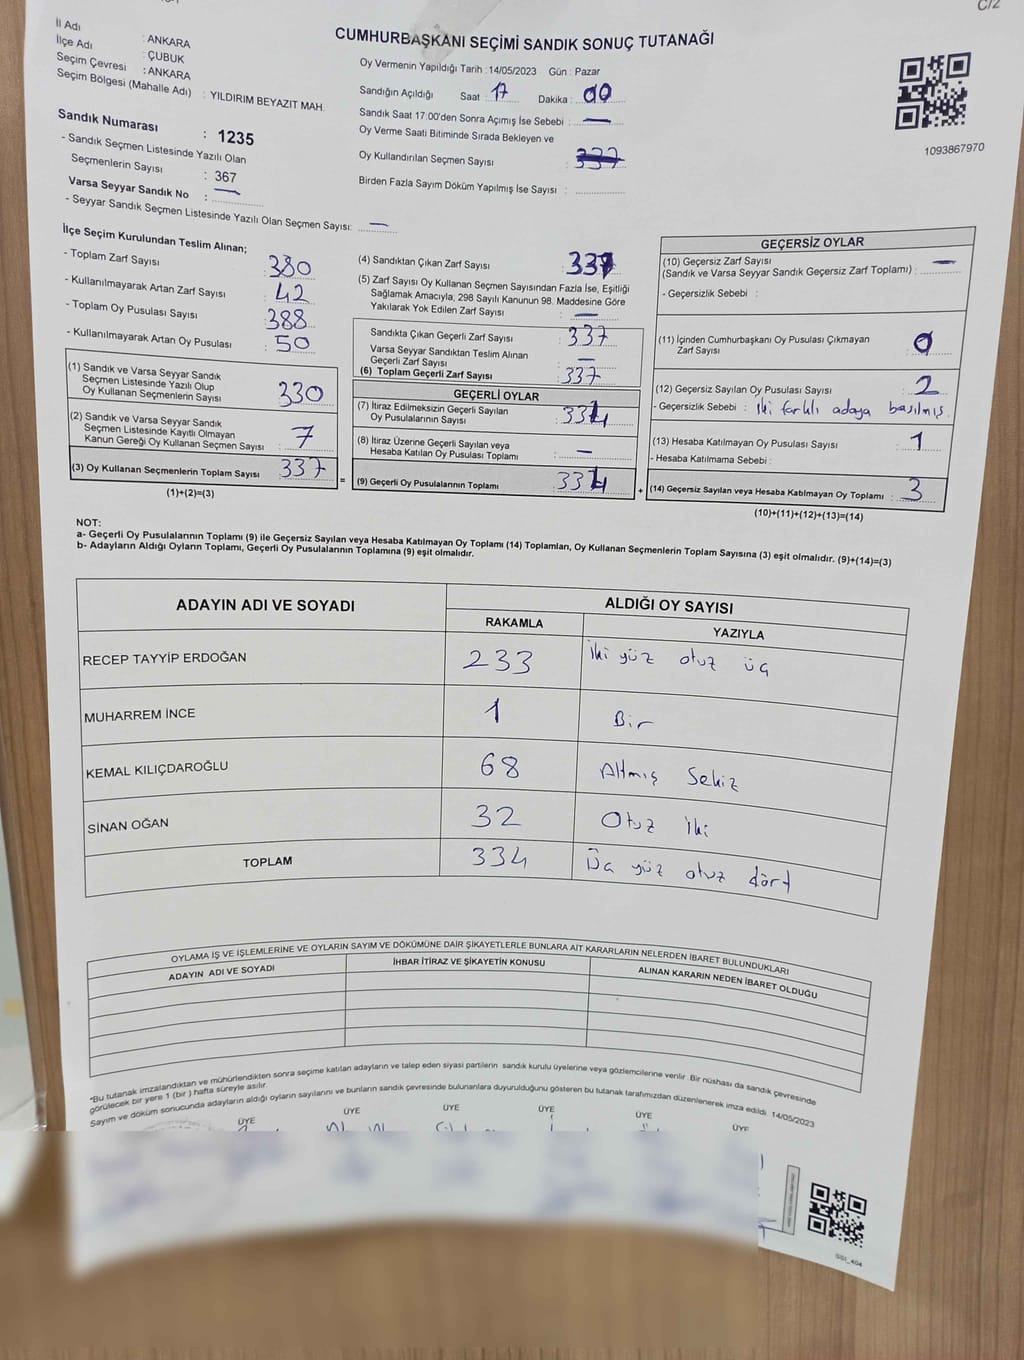 C/2
İl Adı : ANKARA
İlçe Adı : ÇUBUK
Seçim Çevresi : ANKARA
Seçim Bölgesi (Mahalle Adı) : YILDIRIM BEYAZIT MAH.
Sandık Numarası : 1235
- Sandık Seçmen Listesinde Yazılı Olan
Seçmenlerin Sayısı : 367
Varsa Seyyar Sandık No : —
- Seyyar Sandık Seçmen Listesinde Yazılı Olan Seçmen Sayısı: —
CUMHURBAŞKANI SEÇİMİ SANDIK SONUÇ TUTANAĞI
Oy Vermenin Yapıldığı Tarih : 14/05/2023 Gün : Pazar
Sandığın Açıldığı Saat : 17 Dakika : 00
Sandık Saat 17:00'den Sonra Açımış İse Sebebi : —
Oy Verme Saati Bitiminde Sırada Bekleyen ve
Oy Kullandırılan Seçmen Sayısı : 337
Birden Fazla Sayım Döküm Yapılmış İse Sayısı :
1093867970
İlçe Seçim Kurulundan Teslim Alınan;
- Toplam Zarf Sayısı : 380
- Kullanılmayarak Artan Zarf Sayısı : 42
- Toplam Oy Pusulası Sayısı : 388
- Kullanılmayarak Artan Oy Pusulası : 50
(1) Sandık ve Varsa Seyyar Sandık
Seçmen Listesinde Yazılı Olup
Oy Kullanan Seçmenlerin Sayısı : 330
(2) Sandık ve Varsa Seyyar Sandık
Seçmen Listesinde Kayıtlı Olmayan
Kanun Gereği Oy Kullanan Seçmen Sayısı : 7
(3) Oy Kullanan Seçmenlerin Toplam Sayısı : 337
(1)+(2)=(3)
(4) Sandıktan Çıkan Zarf Sayısı : 337
(5) Zarf Sayısı Oy Kullanan Seçmen Sayısından Fazla İse, Eşitliği
Sağlamak Amacıyla, 298 Sayılı Kanunun 98. Maddesine Göre
Yakılarak Yok Edilen Zarf Sayısı : —
Sandıkta Çıkan Geçerli Zarf Sayısı : 337
Varsa Seyyar Sandıktan Teslim Alınan
Geçerli Zarf Sayısı : —
(6) Toplam Geçerli Zarf Sayısı : 337
GEÇERLİ OYLAR
(7) İtiraz Edilmeksizin Geçerli Sayılan
Oy Pusulalarının Sayısı : 334
(8) İtiraz Üzerine Geçerli Sayılan veya
Hesaba Katılan Oy Pusulası Toplamı : —
= (9) Geçerli Oy Pusulalarının Toplamı : 334 +
GEÇERSİZ OYLAR
(10) Geçersiz Zarf Sayısı
(Sandık ve Varsa Seyyar Sandık Geçersiz Zarf Toplamı) : —
- Geçersizlik Sebebi :
(11) İçinden Cumhurbaşkanı Oy Pusulası Çıkmayan
Zarf Sayısı : 0
(12) Geçersiz Sayılan Oy Pusulası Sayısı : 2
- Geçersizlik Sebebi : iki farklı adaya basılmış.
(13) Hesaba Katılmayan Oy Pusulası Sayısı : 1
- Hesaba Katılmama Sebebi :
(14) Geçersiz Sayılan veya Hesaba Katılmayan Oy Toplamı : 3
(10)+(11)+(12)+(13)=(14)
NOT:
a- Geçerli Oy Pusulalarının Toplamı (9) ile Geçersiz Sayılan veya Hesaba Katılmayan Oy Toplamı (14) Toplamları, Oy Kullanan Seçmenlerin Toplam Sayısına (3) eşit olmalıdır. (9)+(14)=(3)
b- Adayların Aldığı Oyların Toplamı, Geçerli Oy Pusulalarının Toplamına (9) eşit olmalıdır.
ADAYIN ADI VE SOYADI
ALDIĞI OY SAYISI
RAKAMLA YAZIYLA
RECEP TAYYİP ERDOĞAN 233 İki yüz otuz üç
MUHARREM İNCE 1 Bir
KEMAL KILIÇDAROĞLU 68 Altmış Sekiz
SİNAN OĞAN 32 Otuz İki
TOPLAM 334 Üç yüz otuz dört
OYLAMA İŞ VE İŞLEMLERİNE VE OYLARIN SAYIM VE DÖKÜMÜNE DAİR ŞİKAYETLERLE BUNLARA AİT KARARLARIN NELERDEN İBARET BULUNDUKLARI
ADAYIN ADI VE SOYADI İHBAR İTİRAZ VE ŞİKAYETİN KONUSU ALINAN KARARIN NEDEN İBARET OLDUĞU
*Bu tutanak imzalandıktan ve mühürlendikten sonra seçime katılan adayların ve talep eden siyasi partilerin sandık kurulu üyelerine veya gözlemcilerine verilir. Bir nüshası da sandık çevresinde
görülecek bir yere 1 (bir ) hafta süreyle asılır.
Sayım ve döküm sonucunda adayların aldığı oyların sayılarını ve bunların sandık çevresinde bulunanlara duyurulduğunu gösteren bu tutanak tarafımızdan düzenlenerek imza edildi. 14/05/2023
ÜYE ÜYE ÜYE ÜYE ÜYE ÜYE